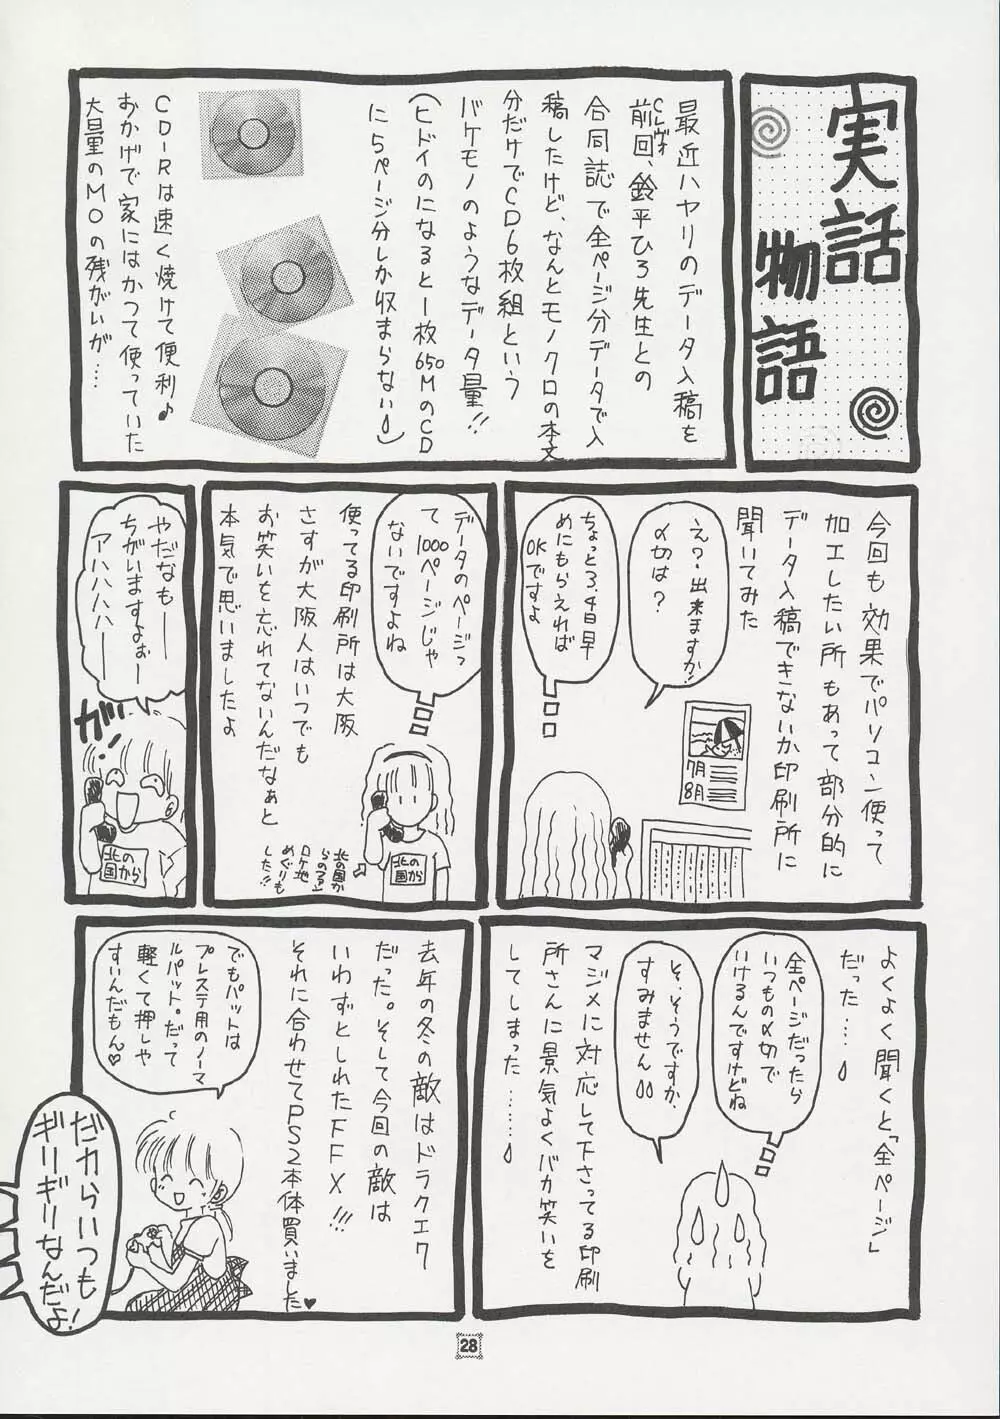 実話
物語
最近ハヤリのデータ入稿を
前回、鈴平ひろ先生との
CLツヴァイ
合同誌で全ページ分データで入
稿したけど、なんとモノクロの本文
分だけでCD6枚組という
バケモノのようなデータ量!!
(ヒドイのになると一枚650MのCD
に5ページ分しか収まらない)
CD-Rは速く焼けて便利♪
おかげで家にはかつて使っていた
大量のMOの残がいが…
今回も効果でパソコン使って
加工したい所もあって部分的に
データ入稿できないか印刷所に
聞いてみた
え?出来ますか!
〆切は?
ちょっと3.4日早
めにもらえれば
OKですよ
7月
8月
データのページっ
て1000ページじゃ
ないですよね
使ってる印刷所は大阪
さすが大阪人はいつでも
お笑いを忘れてないんだなぁと
本気で思いましたよ
北の国か
らのTシャツ
ロケ地
めぐりも
した!!
北の
国から
やだなもー
ちがいますよぉー
アハハハハハー
ガ!
北の
国から
よくよく聞くと「全ページ」
だった……
全ページだったら
いつもの〆切で
いけるんですけどね
そ、そうですか、
すみません
マジメに対応して下さってる印刷
所さんに景気よくバカ笑いを
してしまった………
去年の冬の敵はドラクエ7
だった。そして今回の敵は
いわずとしれたFFX!!!
それに合わせてPS2本体買いました♥
でもパットは
プレステ用のノーマ
ルパット。だって
軽くて押しや
すいんだもん♡
だからいつも
ギリギリなんだよ!
28